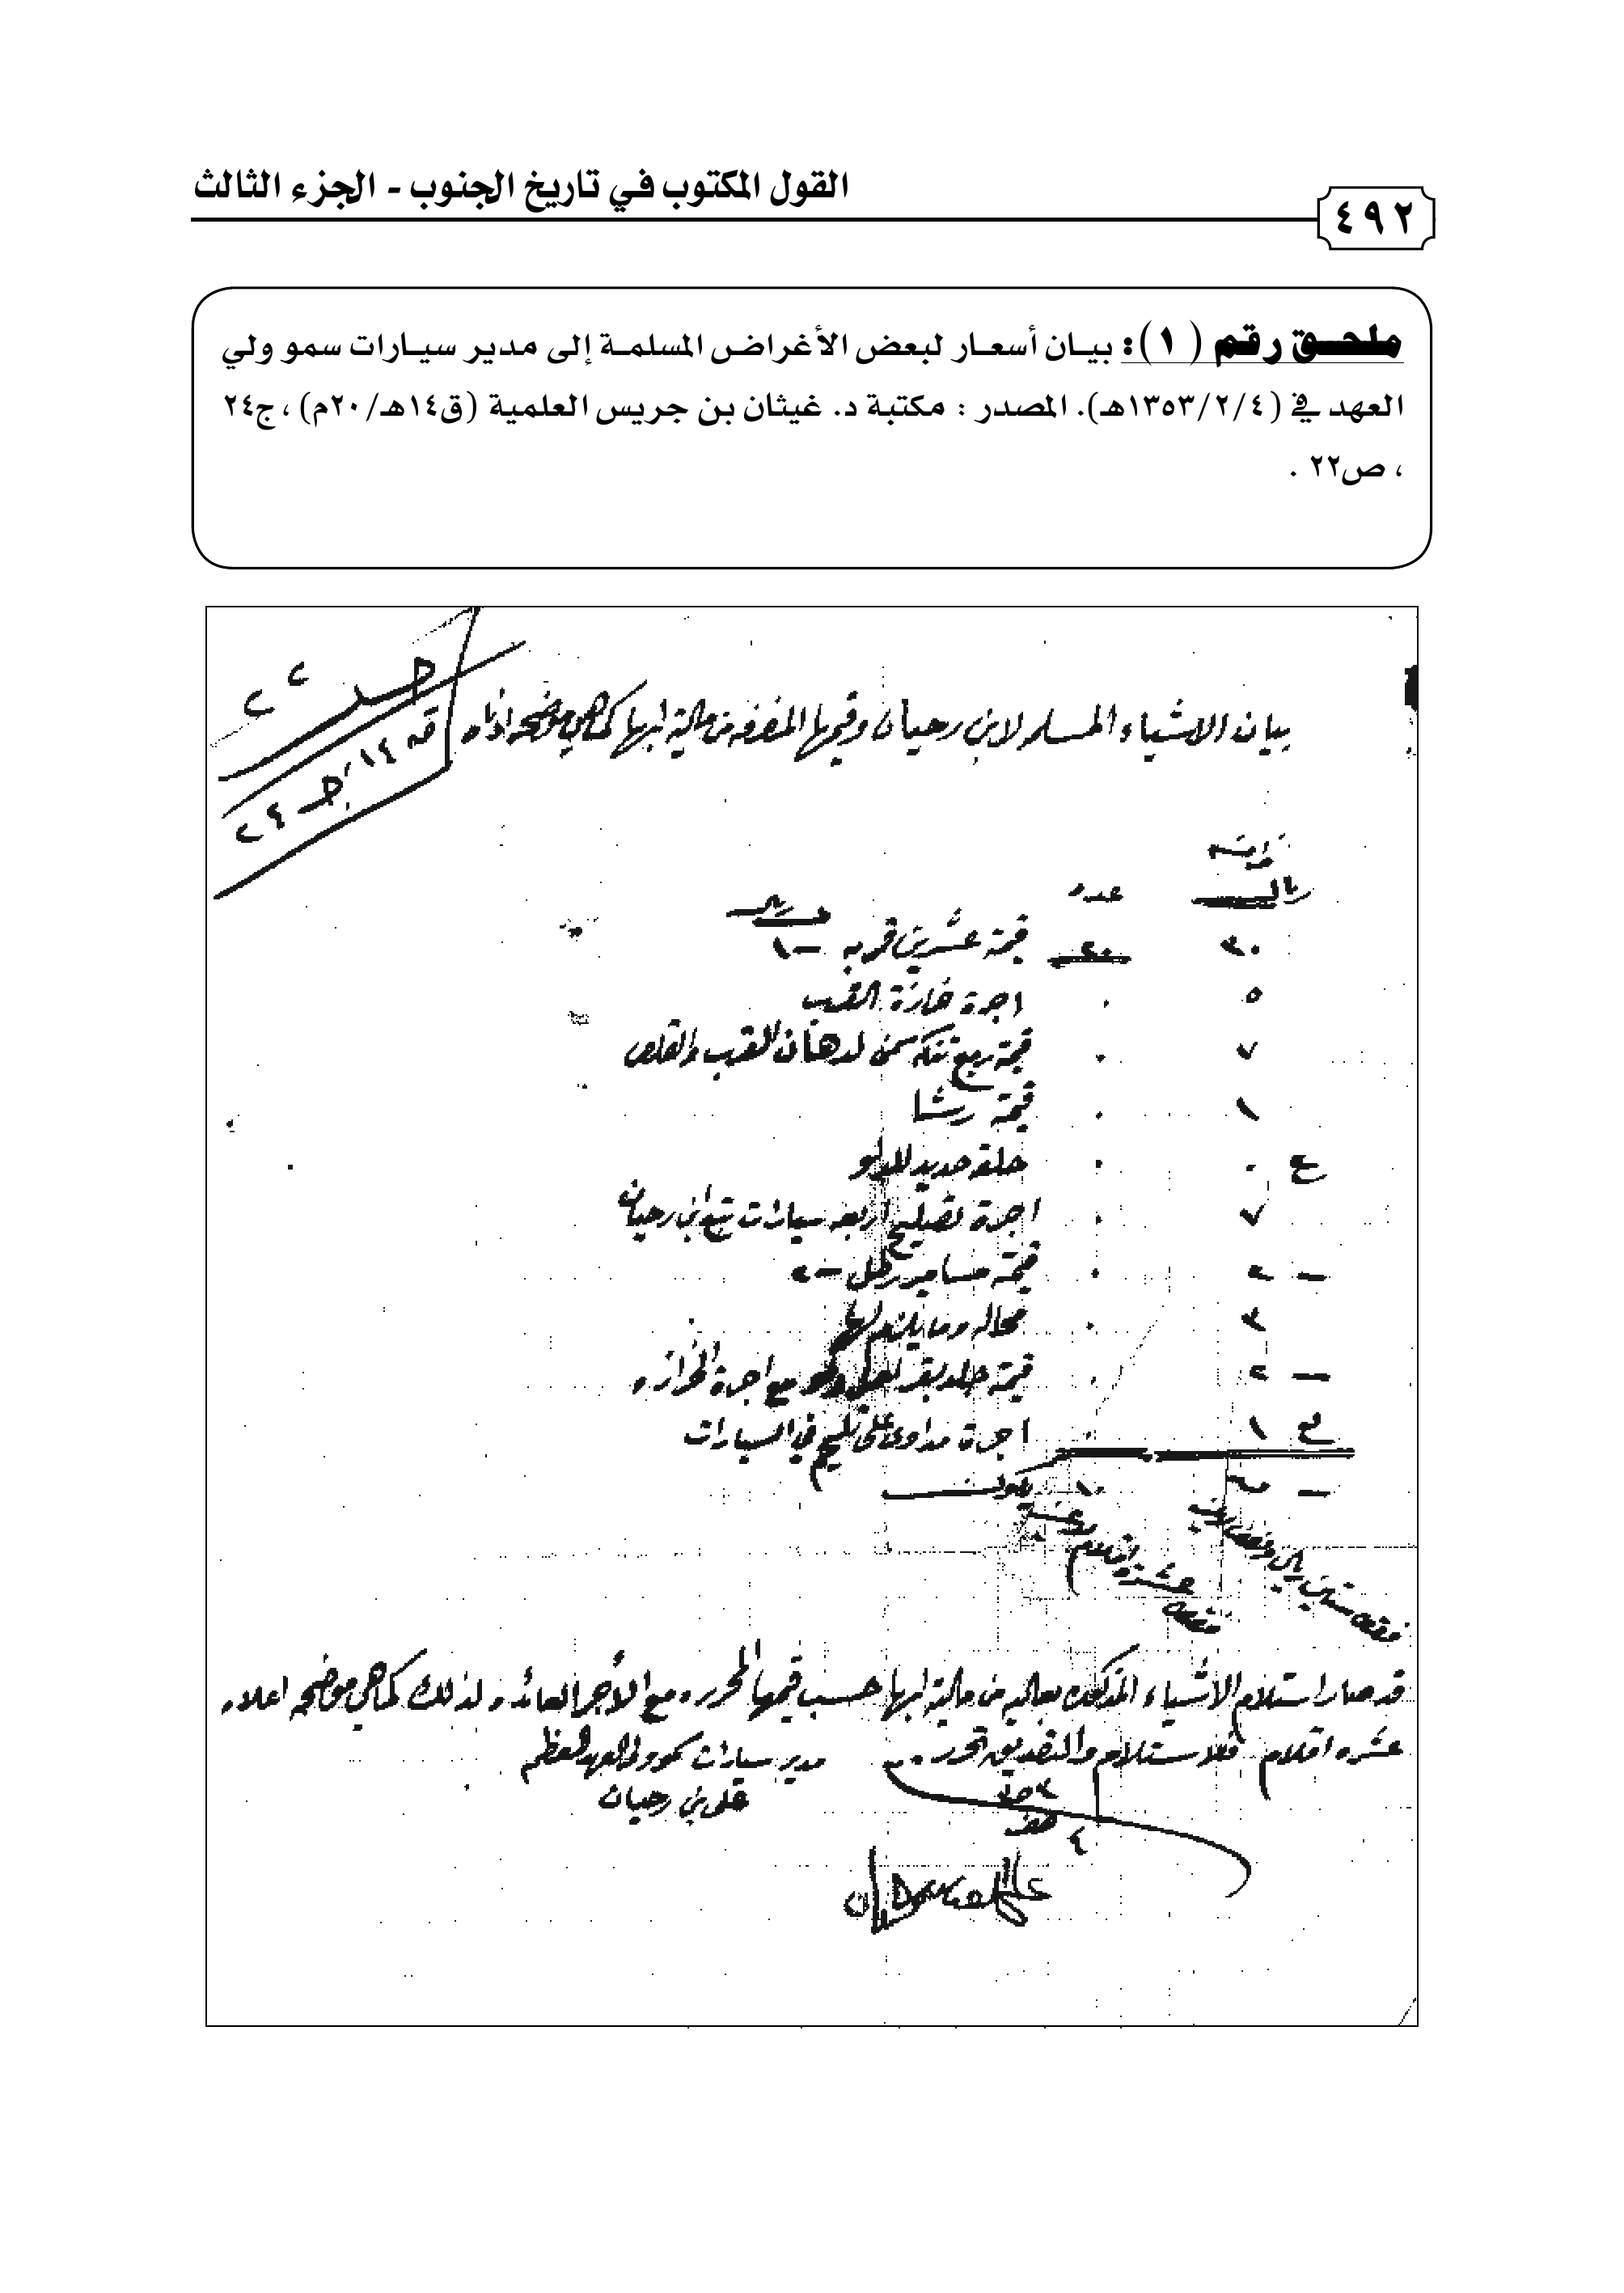 القول المكتوب في تاريخ الجنوب - الجزء الثالث
٤٩٢
ملحق رقم (١): بيان أسعار لبعض الأغراض المسلمة إلى مدير سيارات سمو ولي
العهد في (١٣٥٣/٢/٤هـ). المصدر : مكتبة د. غيثان بن جريس العلمية (ق١٤هـ/٢٠م) ، ج٢٤
، ص٢٢ .
٢٢
ق ١٤ / ج ٢٤
بيان الاشياء المسلمه لابن رحيان وقيمها المصرفه من مالية ابها كما هي موضحه ادناه
ريال عدد
٣٠ ٢٠ قيمة عشرين قربه
٥ ٠ اجرة خرازة القرب
٧ ٠ قيمة ربع تنكه سمن لدهان القرب والقلص
١ ٠ قيمة رشا
٠ ٠ حلقة حديد للدلو
٧ ٠ اجرة تصليح اربعه سيارات تبع ابن رحيان
٢ ٠ قيمة مسامير
٣ ٠ محاله وما يلزم لها
٢ ٠ قيمة جلد بقر مع اجرة الخرازه
١ ٠ اجرة في السيارات
١٠
فقط ستين ريال
فقط عشرة اقلام
قد صار استلام الأشياء المذكوره بعاليه من مالية ابها حسب قيمها المحرره مع الأجر العائده لذلك كما هي موضحه اعلاه
عشره اقلام فللاستلام والتصديق تحرر
مدير سيارات سمو ولي العهد المعظم
علي بن رحيان
٤ صفر